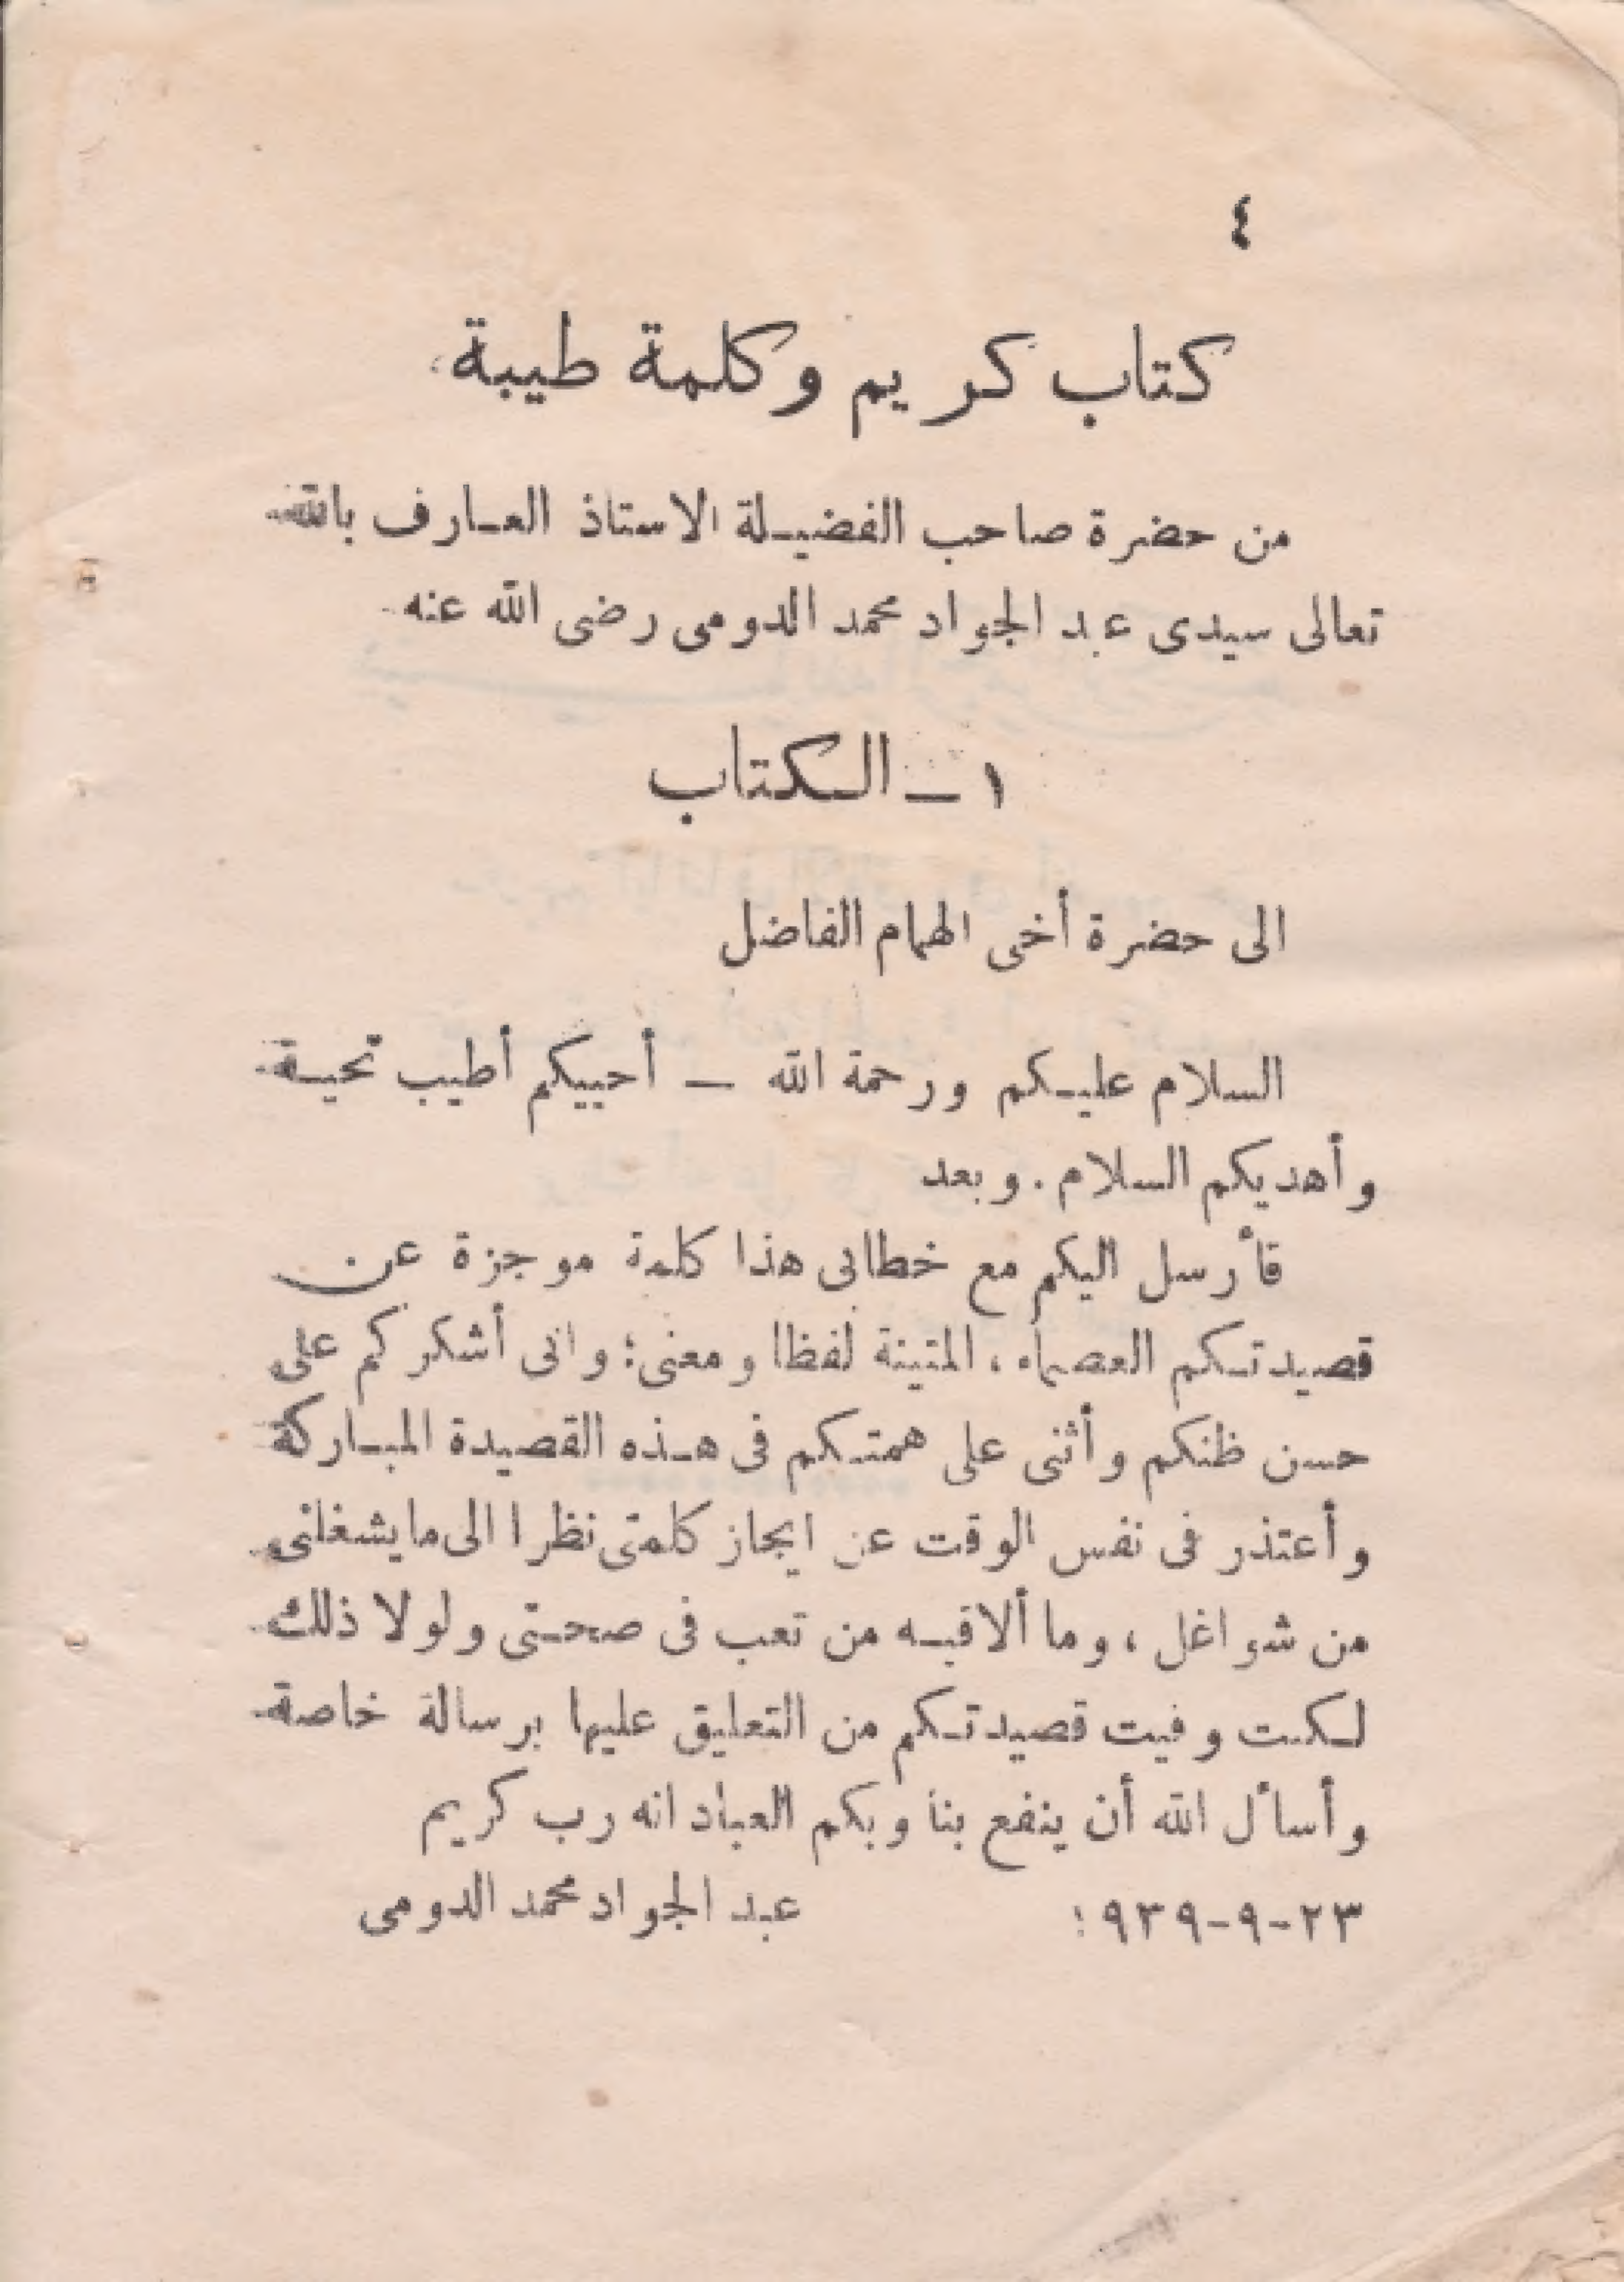 ٤
كتاب كريم وكلمة طيبة
من حضرة صاحب الفضيلة الاستاذ العارف بالله
تعالى سيدى عبد الجواد محمد الدومى رضى الله عنه
١ – الكتاب
الى حضرة أخى الهمام الفاضل
السلام عليكم ورحمة الله – أحييكم أطيب تحية
وأهديكم السلام . وبعد
فأرسل اليكم مع خطابى هذا كلمة موجزة عن
قصيدتكم العصماء ، المتينة لفظا ومعنى ؛ وانى أشكركم على
حسن ظنكم وأثنى على همتكم فى هذه القصيدة المباركة
وأعتذر فى نفس الوقت عن ايجاز كلمتى نظرا الى ما يشغلنى
من شواغل ، وما ألاقيه من تعب فى صحتى ولولا ذلك
لكنت وفيت قصيدتكم من التعليق عليها برسالة خاصة
وأسأل الله أن ينفع بنا وبكم العباد انه رب كريم
٢٣-٩-١٩٣٩ عبد الجواد محمد الدومى